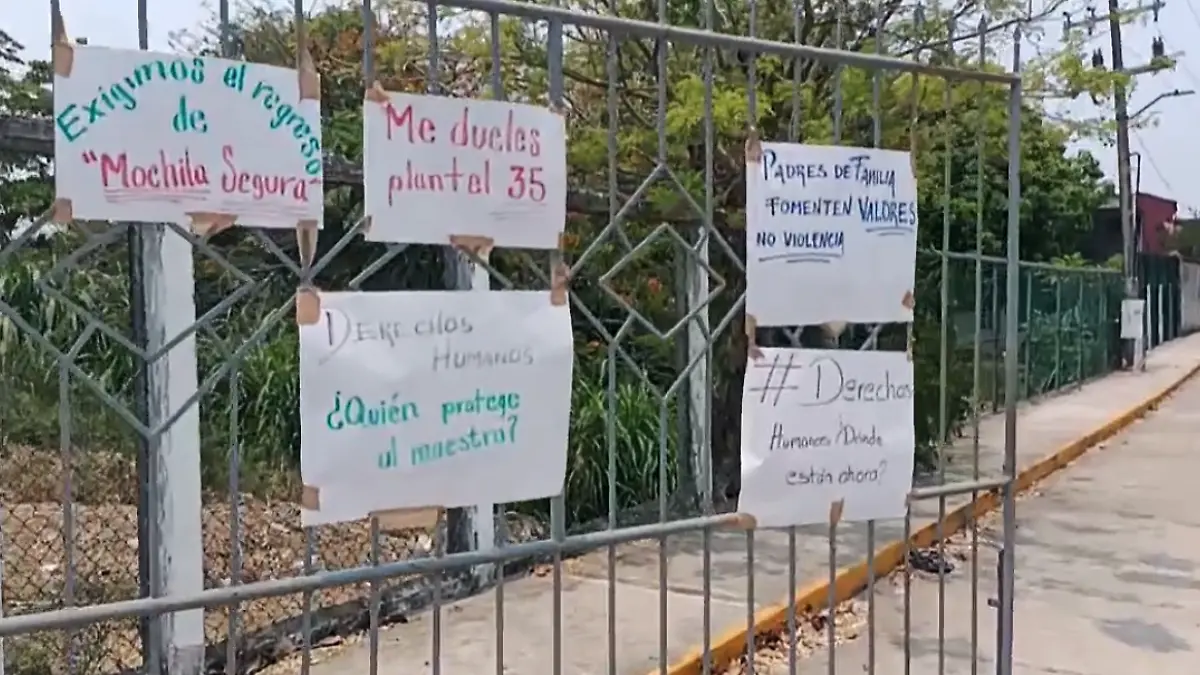 Exigimos el regreso
de
"Mochila Segura"
Me dueles
plantel 35
DERECHOS
HUMANOS
¿Quién protege
al maestro?
PADRES DE FAMILIA
FOMENTEN VALORES
NO VIOLENCIA
#Derechos
Humanos ¿Dónde
están ahora?